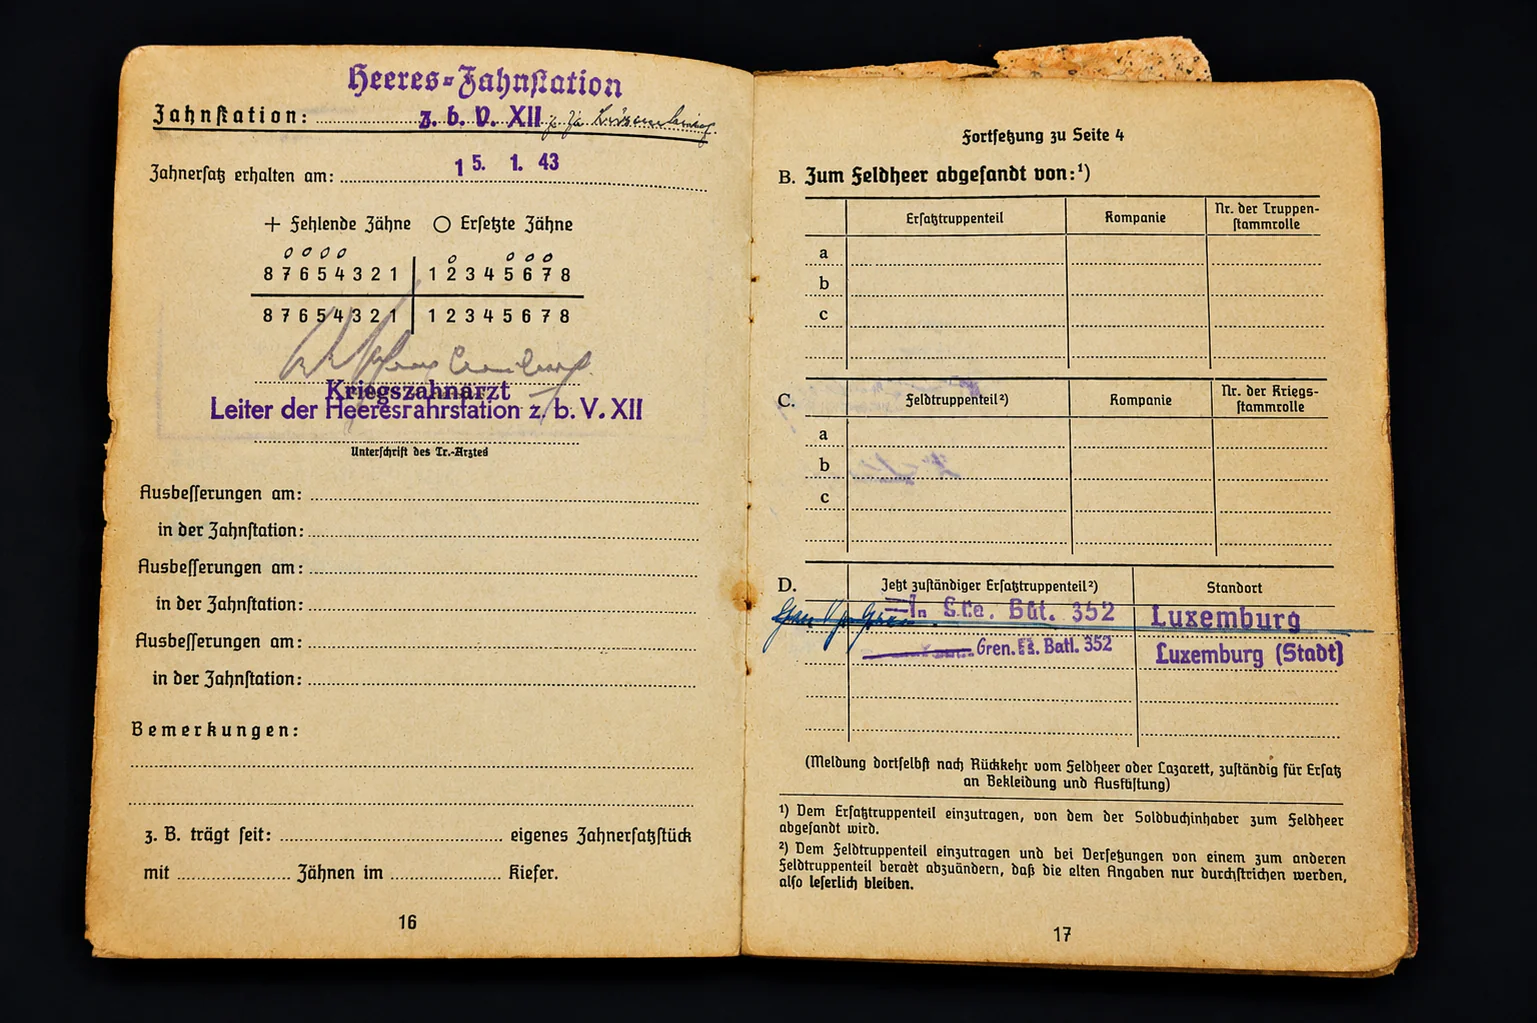 Heeres-Zahnstation
Zahnstation: z. b. V. XII
Zahnersatz erhalten am: 15. 1. 43
+ Fehlende Zähne O Ersetzte Zähne
o o o o o o o o
8 7 6 5 4 3 2 1 1 2 3 4 5 6 7 8
8 7 6 5 4 3 2 1 1 2 3 4 5 6 7 8
Kriegszahnarzt
Leiter der Heeresrahrstation z. b. V. XII
Unterschrift des Tr.-Arztes
Ausbesserungen am:
in der Zahnstation:
Ausbesserungen am:
in der Zahnstation:
Ausbesserungen am:
in der Zahnstation:
Bemerkungen:
z. B. trägt seit: eigenes Zahnersatzstück
mit Zähnen im Kiefer.
16
Fortsetzung zu Seite 4
B. Zum Feldheer abgesandt von:¹)
Ersatztruppenteil Kompanie Nr. der Truppen-
stammrolle
a
b
c
C. Feldtruppenteil²) Kompanie Nr. der Kriegs-
stammrolle
a
b
c
D. Jetzt zuständiger Ersatztruppenteil²) Standort
Btl. 352 Luxemburg
Gren. Batl. 352 Luxemburg (Stadt)
(Meldung dortselbst nach Rückkehr vom Feldheer oder Lazarett, zuständig für Ersatz
an Bekleidung und Ausrüstung)
¹) Dem Ersatztruppenteil einzutragen, von dem der Soldbuchinhaber zum Feldheer
abgesandt wird.
²) Dem Feldtruppenteil einzutragen und bei Versetzungen von einem zum anderen
Feldtruppenteil abzuändern, daß die alten Angaben nur durchstrichen werden,
also leserlich bleiben.
17